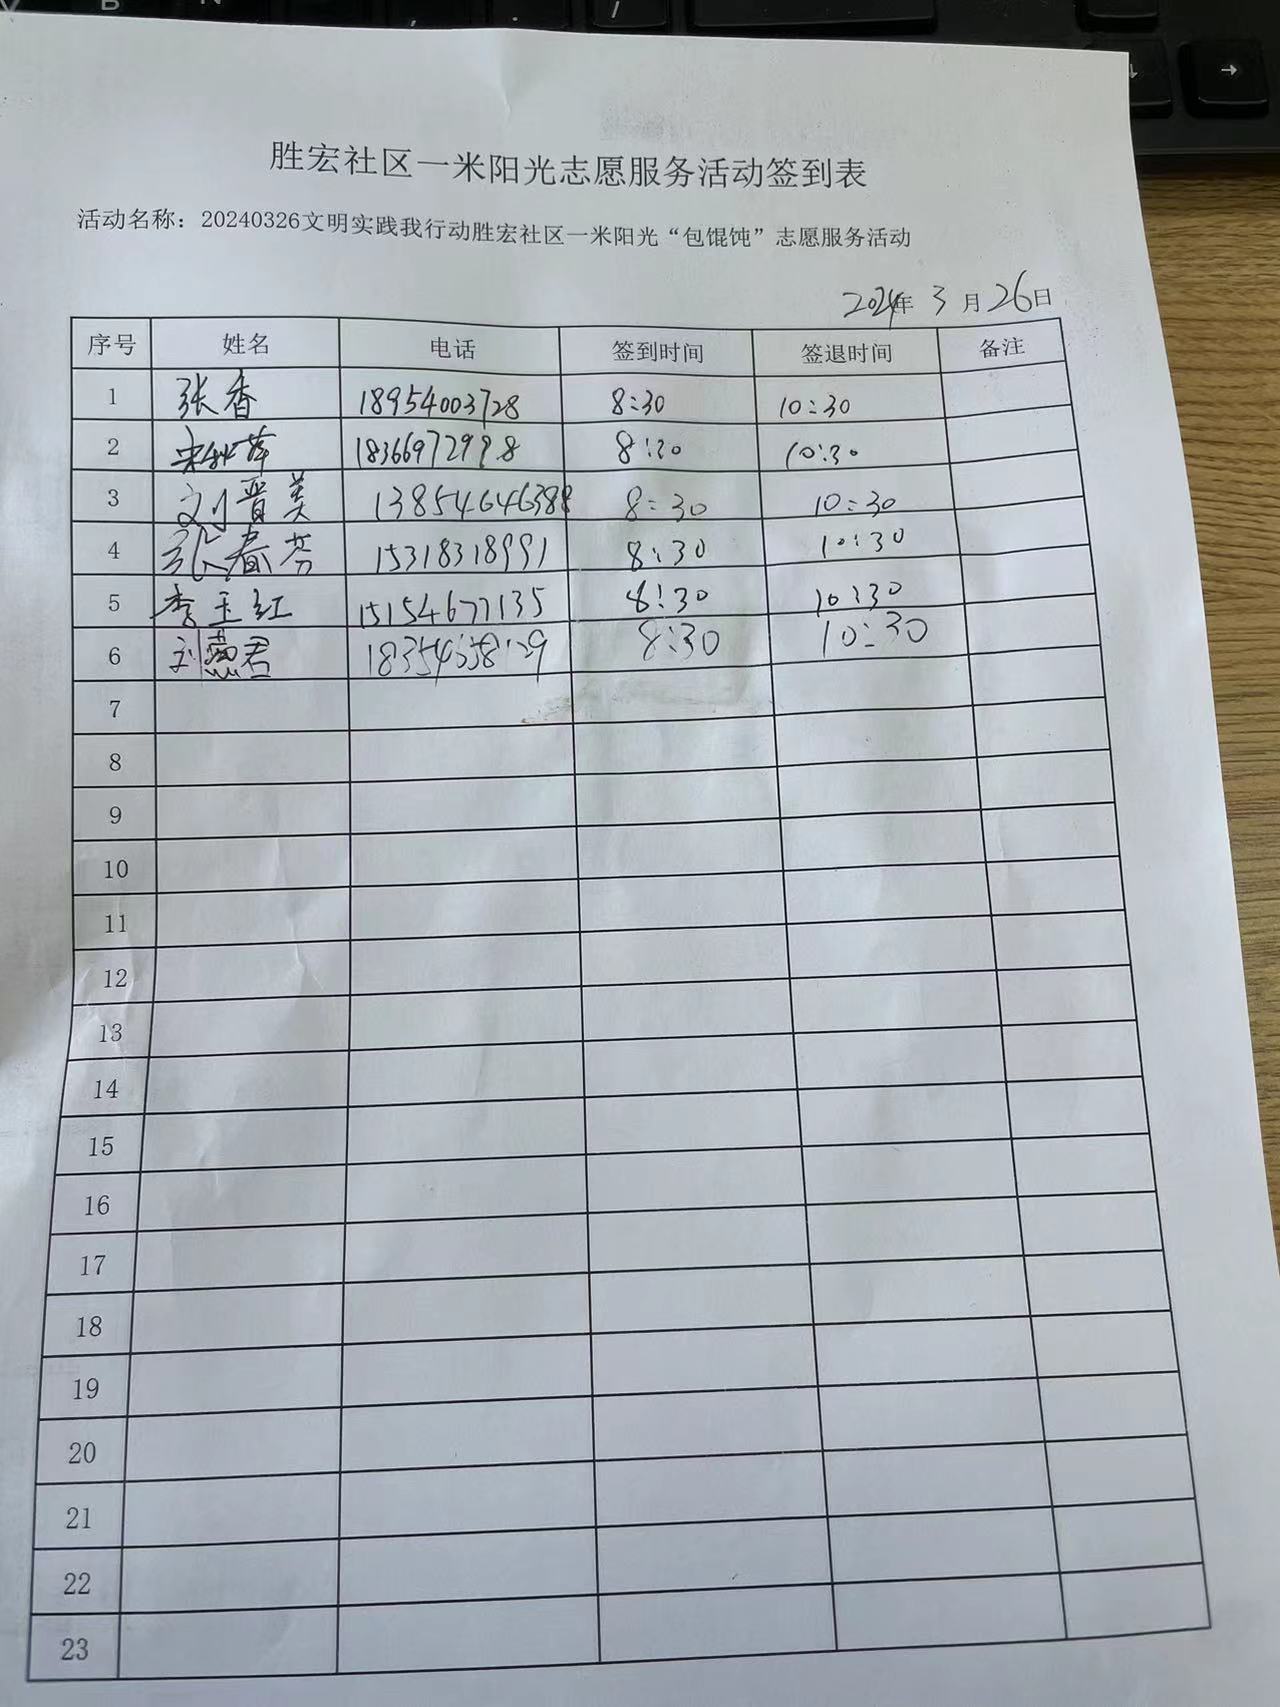 胜宏社区一米阳光志愿服务活动签到表
活动名称：20240326文明实践我行动胜宏社区一米阳光“包馄饨”志愿服务活动
2024年 3 月 26日
序号 姓名 电话 签到时间 签退时间 备注
1 张香 18954003728 8:30 10:30
2 8:30 10:30
3 刘晋美 13854646388 8:30 10:30
4 张春芬 15318318991 8:30 10:30
5 李玉红 15154677135 8:30 10:30
6 8:30 10:30
7
8
9
10
11
12
13
14
15
16
17
18
19
20
21
22
23